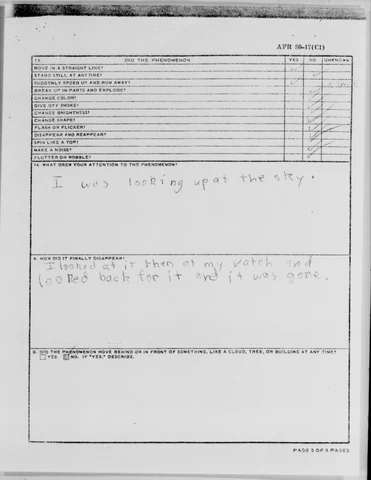 AFR 80-17(C1)
13. DID THE PHENOMENON YES NO UNKNOWN
MOVE IN A STRAIGHT LINE?
STAND STILL AT ANYTIME?
SUDDENLY SPEED UP AND RUN AWAY?
BREAK UP IN PARTS AND EXPLODE?
CHANGE COLOR?
GIVE OFF SMOKE?
CHANGE BRIGHTNESS?
CHANGE SHAPE?
FLASH OR FLICKER?
DISAPPEAR AND REAPPEAR?
SPIN LIKE A TOP?
MAKE A NOISE?
FLUTTER OR WOBBLE?
14. WHAT DREW YOUR ATTENTION TO THE PHENOMENON?
I was looking up at the sky.
A. HOW DID IT FINALLY DISAPPEAR?
I looked at it then at my watch and
looked back for it and it was gone.
B. DID THE PHENOMENON MOVE BEHIND OR IN FRONT OF SOMETHING, LIKE A CLOUD, TREE, OR BUILDING AT ANY TIME?
YES NO. IF "YES," DESCRIBE.
PAGE 5 OF 9 PAGES